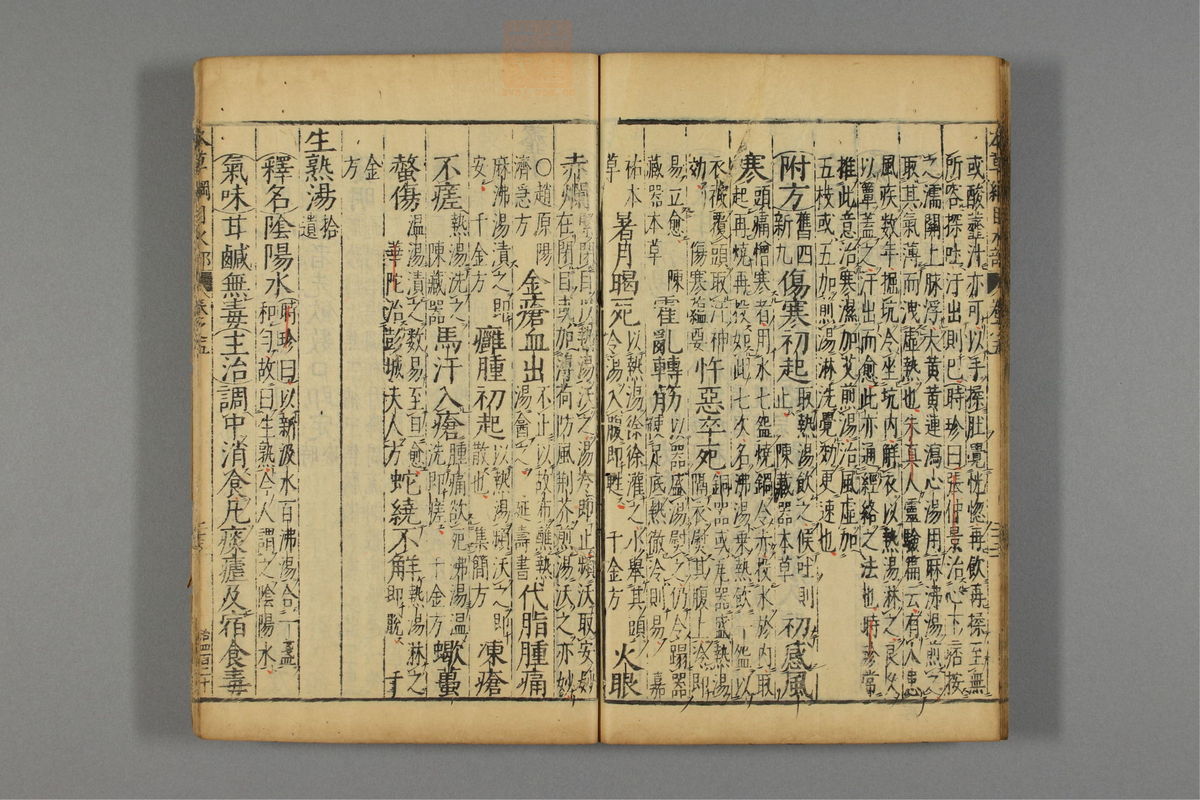 或酸虀汁亦可以手揉肚覺恍惚再飲再探至無
所吐探吐汗出則已時珍曰張仲景治心下痞按
之濡關上脉浮大黃黃連瀉心湯用麻沸湯煎之
取其氣薄而洩虛熱也朱真人靈驗篇云有人患
風疾数年掘坑令坐坑内解衣以熱湯淋之良久
以簟盖之汗出而愈此亦通經絡之法也時珍常
推此意治寒濕加艾煎湯治風虛加
五枝或五加煎湯淋洗覺効更速也
附方舊四新九傷寒初起取熱湯飲之候吐則止陳藏器本草初感風
寒頭痛憎寒者用水七盌燒鍋令赤投水於内取
起再燒再投如此七次名沸湯乗熱飲一盌以
衣被覆頭取汗神効傷寒蘊要忤惡卒死銅器或瓦器盛熱湯
隔衣熨其腹上冷即
易立愈陳藏器本草霍亂轉筋以器盛湯熨之仍令蹋器
使足底熱徹冷則易嘉
祐本草暑月暍死以熱湯徐徐灌之小舉其頭
令湯入腹即甦千金方火眼
赤爛緊閉目以熱湯沃之湯冷即止頻沃取安妙
在閉目或加薄荷防風荆芥煎湯沃之亦妙
○趙原陽濟急方金瘡血出不止以故布蘸熱
湯盦之延壽書代脂腫痛
麻沸湯漬之即安千金方癰腫初起以熱湯頻沃之即
散也集簡方凍瘡
不瘥熱湯洗之陳藏器馬汗入瘡腫痛欲死沸湯温
洗即瘥千金方蠍蠆
螫傷温湯漬之数易至旦愈華陀治彭城夫人方蛇繞不解熱湯淋之
即脱千
金方
生熟湯拾遺
釋名陰陽水時珍曰以新汲水百沸湯合一盞
和勻故曰生熟今人謂之陰陽水
氣味甘鹹無毒主治調中消食凡痰瘧及宿食毒
本草綱目水部
卷之五